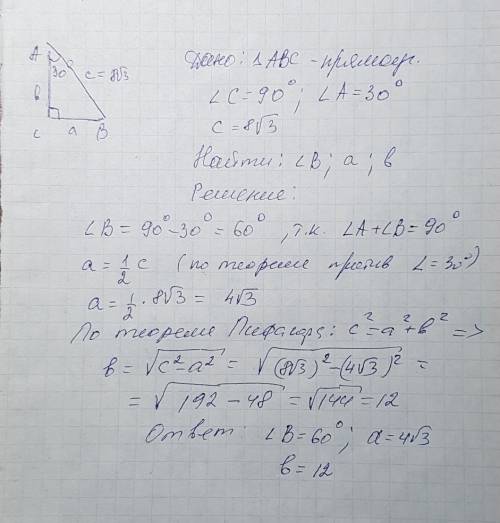 A
30°
c = 8√3
в
c
a
B
Дано: △ABC - прямоуг.
∠C = 90°; ∠A = 30°
c = 8√3
Найти: ∠B; a; в
Решение:
∠B = 90° - 30° = 60°, т.к. ∠A + ∠B = 90°
a = 1/2 c (по теореме против ∠ = 30°)
a = 1/2 · 8√3 = 4√3
По теореме Пифагора: c² = a² + в² =>
в = √(c² - a²) = √((8√3)² - (4√3)²) =
= √(192 - 48) = √144 = 12
Ответ: ∠B = 60°; a = 4√3
в = 12